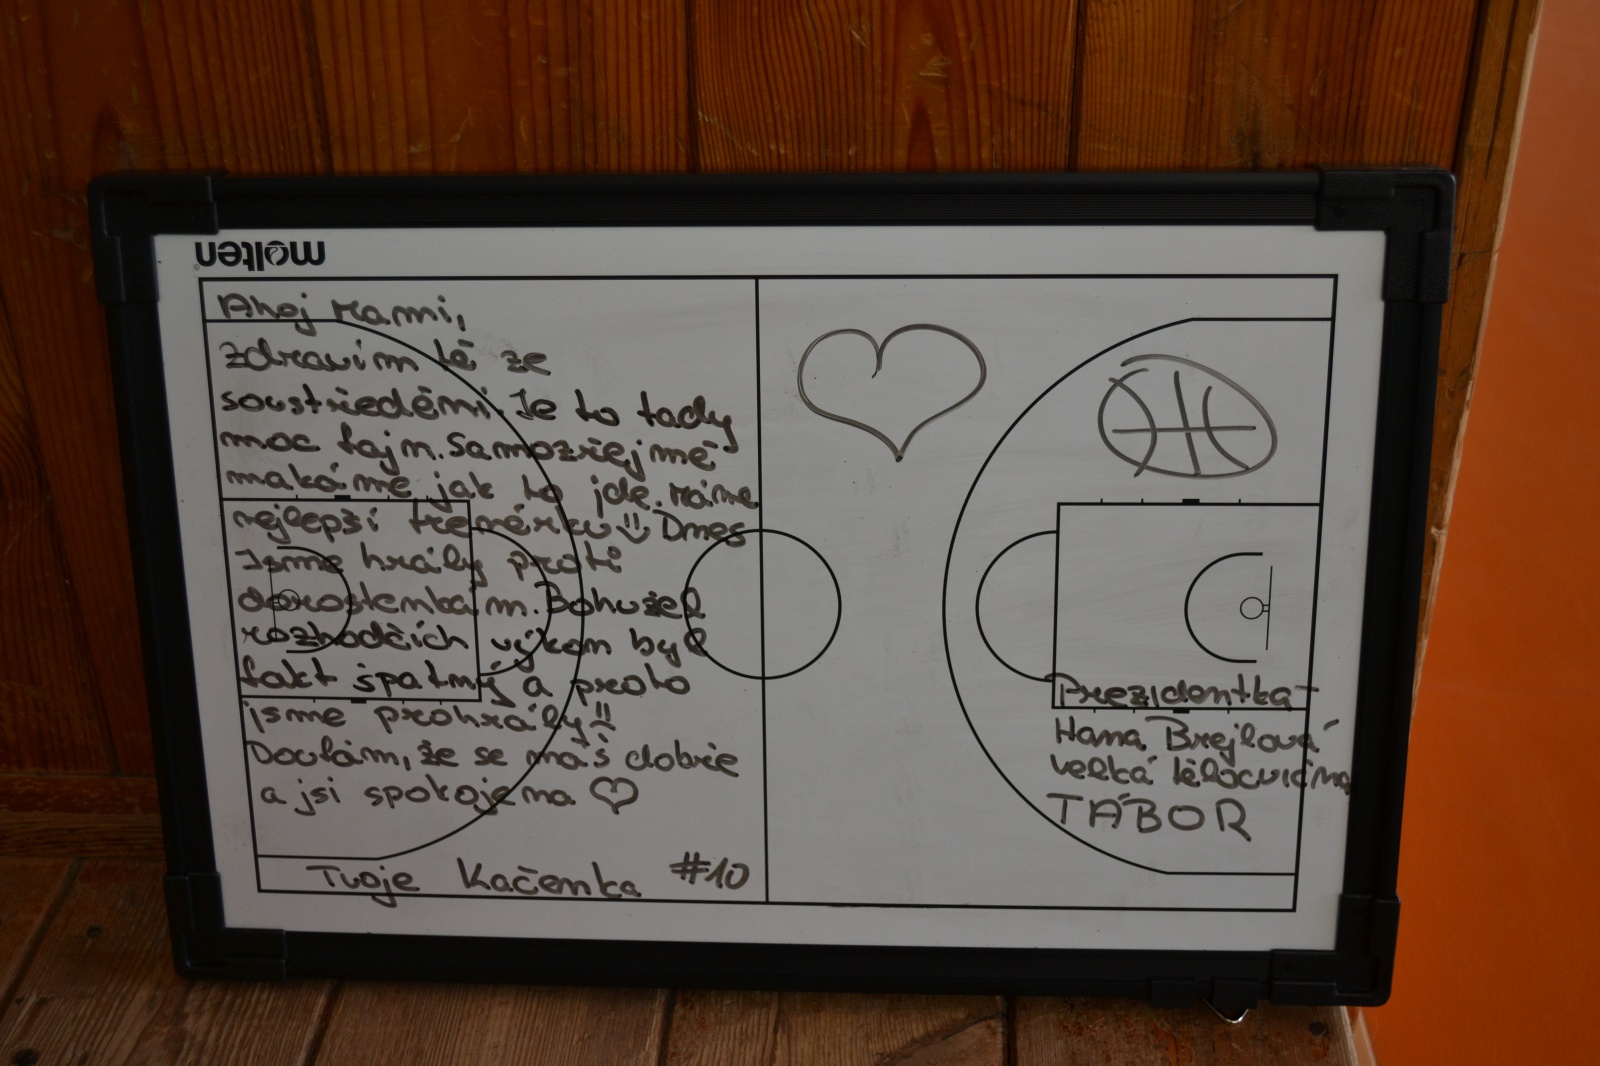 molten
Ahoj Hami,
zdravím tě ze
soustředění. Je to tady
moc fajn. Samozřejmě
makáme jak to jde. Máme
nejlepší trenérku Dnes
Jsme hrály proti
dorostenkám. Bohužel
rozhodčích výkon byl
fakt špatný a proto
jsme prohrály
Doufám, že se máš dobře
a jsi spokojena
Tvoje Kačenka #10
Prezidentka
Hana Brejlová
velká tělocvična
TÁBOR